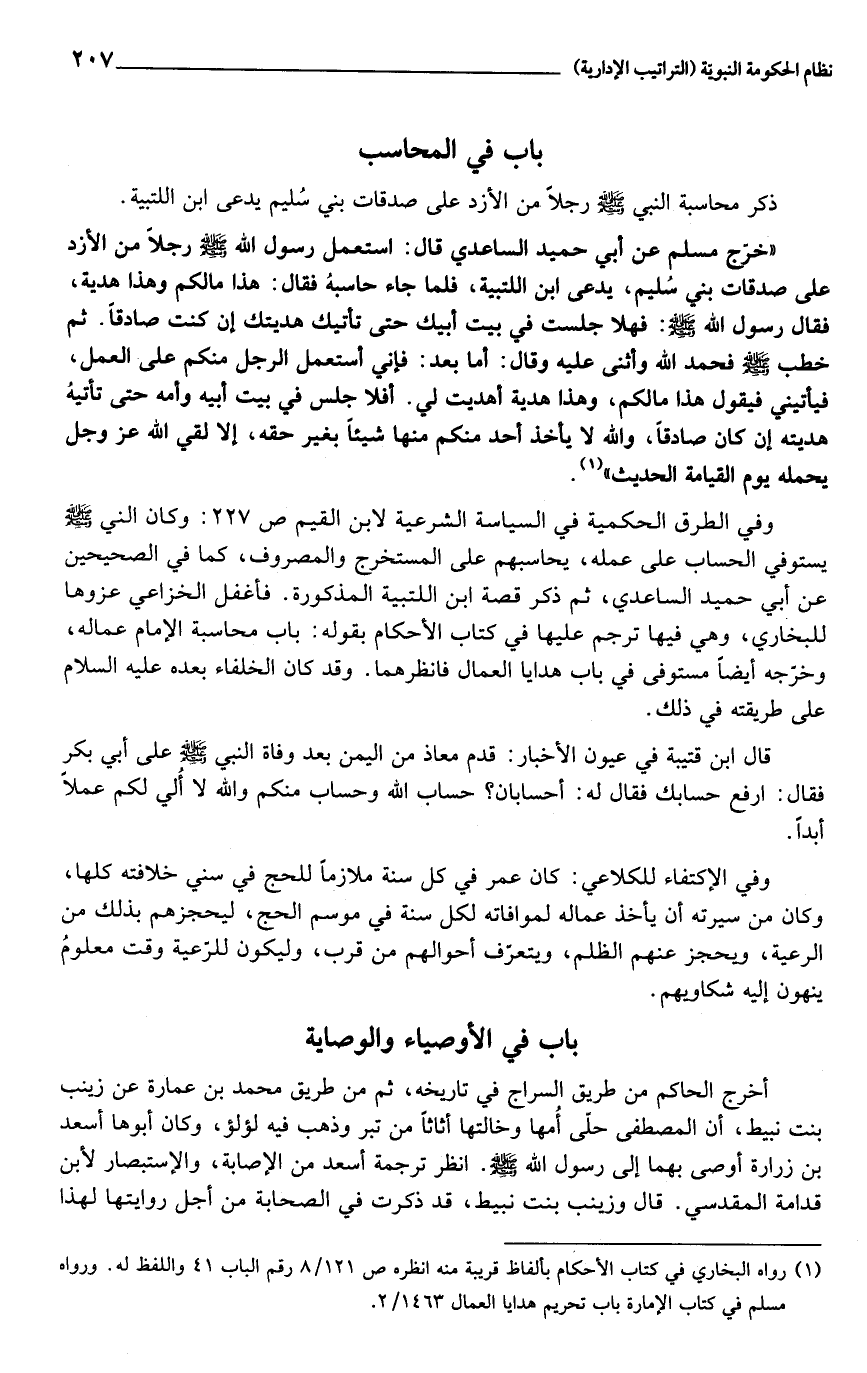 نظام الحكومة النبويّة (التراتيب الإدارية) ٢٠٧
باب في المحاسب
ذكر محاسبة النبي ﷺ رجلاً من الأزد على صدقات بني سُليم يدعى ابن اللتبية.
«خرّج مسلم عن أبي حميد الساعدي قال: استعمل رسول الله ﷺ رجلاً من الأزد
على صدقات بني سُليم، يدعى ابن اللتبية، فلما جاء حاسبهُ فقال: هذا مالكم وهذا هدية،
فقال رسول الله ﷺ: فهلا جلست في بيت أبيك حتى تأتيك هديتك إن كنت صادقاً. ثم
خطب ﷺ فحمد الله وأثنى عليه وقال: أما بعد: فإني أستعمل الرجل منكم على العمل،
فيأتيني فيقول هذا مالكم، وهذا هدية أهديت لي. أفلا جلس في بيت أبيه وأمه حتى تأتيهُ
هديته إن كان صادقاً، والله لا يأخذ أحد منكم منها شيئاً بغير حقه، إلا لقي الله عز وجل
يحمله يوم القيامة الحديث»(١).
وفي الطرق الحكمية في السياسة الشرعية لابن القيم ص ٢٢٧: وكان الني ﷺ
يستوفي الحساب على عمله، يحاسبهم على المستخرج والمصروف، كما في الصحيحين
عن أبي حميد الساعدي، ثم ذكر قصة ابن اللتبية المذكورة. فأغفل الخزاعي عزوها
للبخاري، وهي فيها ترجم عليها في كتاب الأحكام بقوله: باب محاسبة الإمام عماله،
وخرّجه أيضاً مستوفى في باب هدايا العمال فانظرهما. وقد كان الخلفاء بعده عليه السلام
على طريقته في ذلك.
قال ابن قتيبة في عيون الأخبار: قدم معاذ من اليمن بعد وفاة النبي ﷺ على أبي بكر
فقال: ارفع حسابك فقال له: أحسابان؟ حساب الله وحساب منكم والله لا أُلي لكم عملاً
أبداً.
وفي الإكتفاء للكلاعي: كان عمر في كل سنة ملازماً للحج في سني خلافته كلها،
وكان من سيرته أن يأخذ عماله لموافاته لكل سنة في موسم الحج، ليحجزهم بذلك من
الرعية، ويحجز عنهم الظلم، ويتعرّف أحوالهم من قرب، وليكون للرّعية وقت معلومُ
ينهون إليه شكاويهم.
باب في الأوصياء والوصاية
أخرج الحاكم من طريق السراج في تاريخه، ثم من طريق محمد بن عمارة عن زينب
بنت نبيط، أن المصطفى حلّى أُمها وخالتها أثاثاً من تبر وذهب فيه لؤلؤ، وكان أبوها أسعد
بن زرارة أوصى بهما إلى رسول الله ﷺ. انظر ترجمة أسعد من الإصابة، والإستبصار لأبن
قدامة المقدسي. قال وزينب بنت نبيط، قد ذكرت في الصحابة من أجل روايتها لهذا
(١) رواه البخاري في كتاب الأحكام بألفاظ قريبة منه انظره ص ٨/١٢١ رقم الباب ٤١ واللفظ له. ورواه
مسلم في كتاب الإمارة باب تحريم هدايا العمال ٢/١٤٦٣.